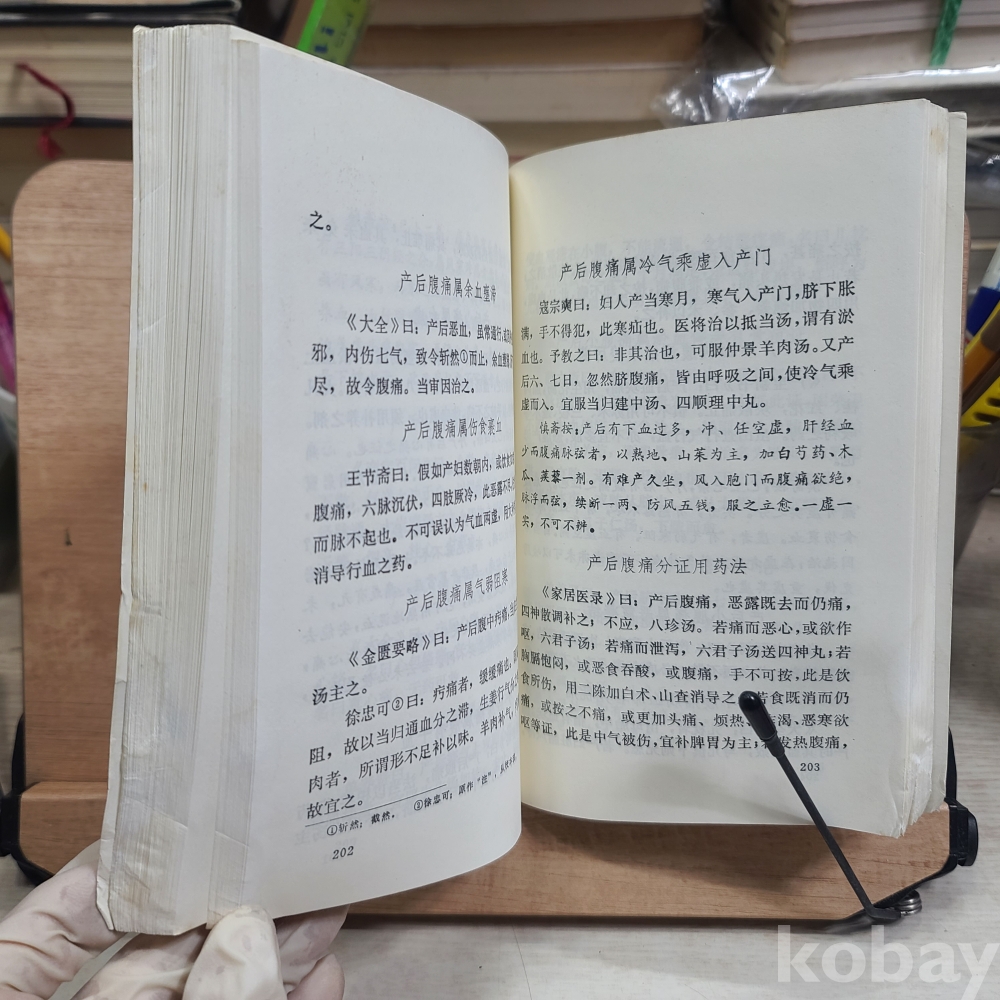 之。
产后腹痛属余血壅滞
《大全》曰：产后恶血，虽常通行，
邪，内伤七气，致令斩然①而止，余血壅
尽，故令腹痛。当审因治之。
产后腹痛属伤食裹血
王节斋曰：假如产妇数朝内，或饮食
腹痛，六脉沉伏，四肢厥冷，此恶露不尽，
而脉不起也。不可误认为气血两虚，
消导行血之药。
产后腹痛属气弱阻寒
《金匮要略》曰：产后腹中㽲痛，
汤主之。
徐忠可②曰：㽲痛者，缓缓痛也，
阻，故以当归通血分之滞，生姜行气分
肉者，所谓形不足补以味。羊肉补气，
故宜之。
①斩然：截然。 ②徐忠可：原作“徐”，
202
产后腹痛属冷气乘虚入产门
寇宗奭曰：妇人产当寒月，寒气入产门，脐下胀
满，手不得犯，此寒疝也。医将治以抵当汤，谓有淤
血也。予教之曰：非其治也，可服仲景羊肉汤。又产
后六、七日，忽然脐腹痛，皆由呼吸之间，使冷气乘
虚而入。宜服当归建中汤、四顺理中丸。
慎斋按：产后有下血过多，冲、任空虚，肝经血
少而腹痛脉弦者，以熟地、山茱为主，加白芍药、木
瓜、蒺藜一剂。有难产久坐，风入胞门而腹痛欲绝，
脉浮而弦，续断一两、防风五钱，服之立愈。一虚一
实，不可不辨。
产后腹痛分证用药法
《家居医录》曰：产后腹痛，恶露既去而仍痛，
四神散调补之；不应，八珍汤。若痛而恶心，或欲作
呕，六君子汤。若痛而泄泻，六君子汤送四神丸；若
胸膈饱闷，或恶食吞酸，或腹痛，手不可按，此是饮
食所伤，用二陈加白术、山查消导之 若食既消而仍
痛，或按之不痛，或更加头痛、烦热、 渴、恶寒欲
呕等证，此是中气被伤，宜补脾胃为主； 发热腹痛，
203
kobay